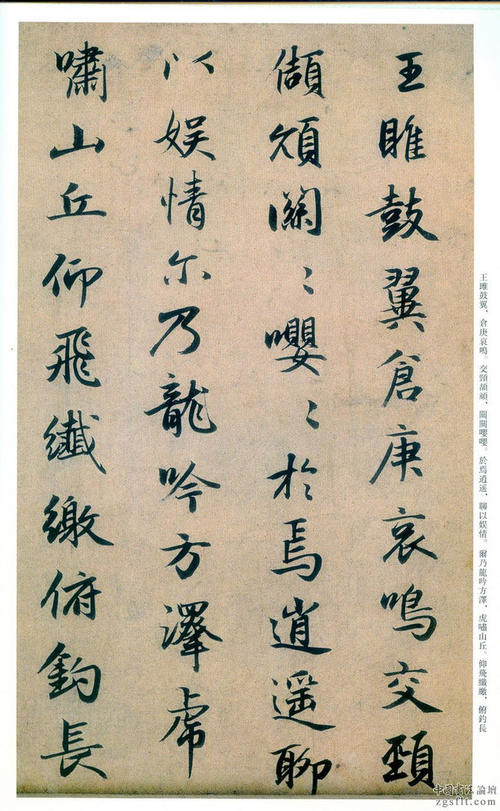 王雎鼓翼、倉庚哀鳴。交頸頡頏、關關嚶嚶。於焉逍遥、聊以娱情。爾乃龍吟方澤、虎嘯山丘。仰飛纖繳、俯釣長
王雎鼓翼倉庚哀鳴交頸
頡頏關〻嚶〻於焉逍遥聊
以娱情尓乃龍吟方澤虎
嘯山丘仰飛纖繳俯釣長
中國書法論壇
zgsflt.com